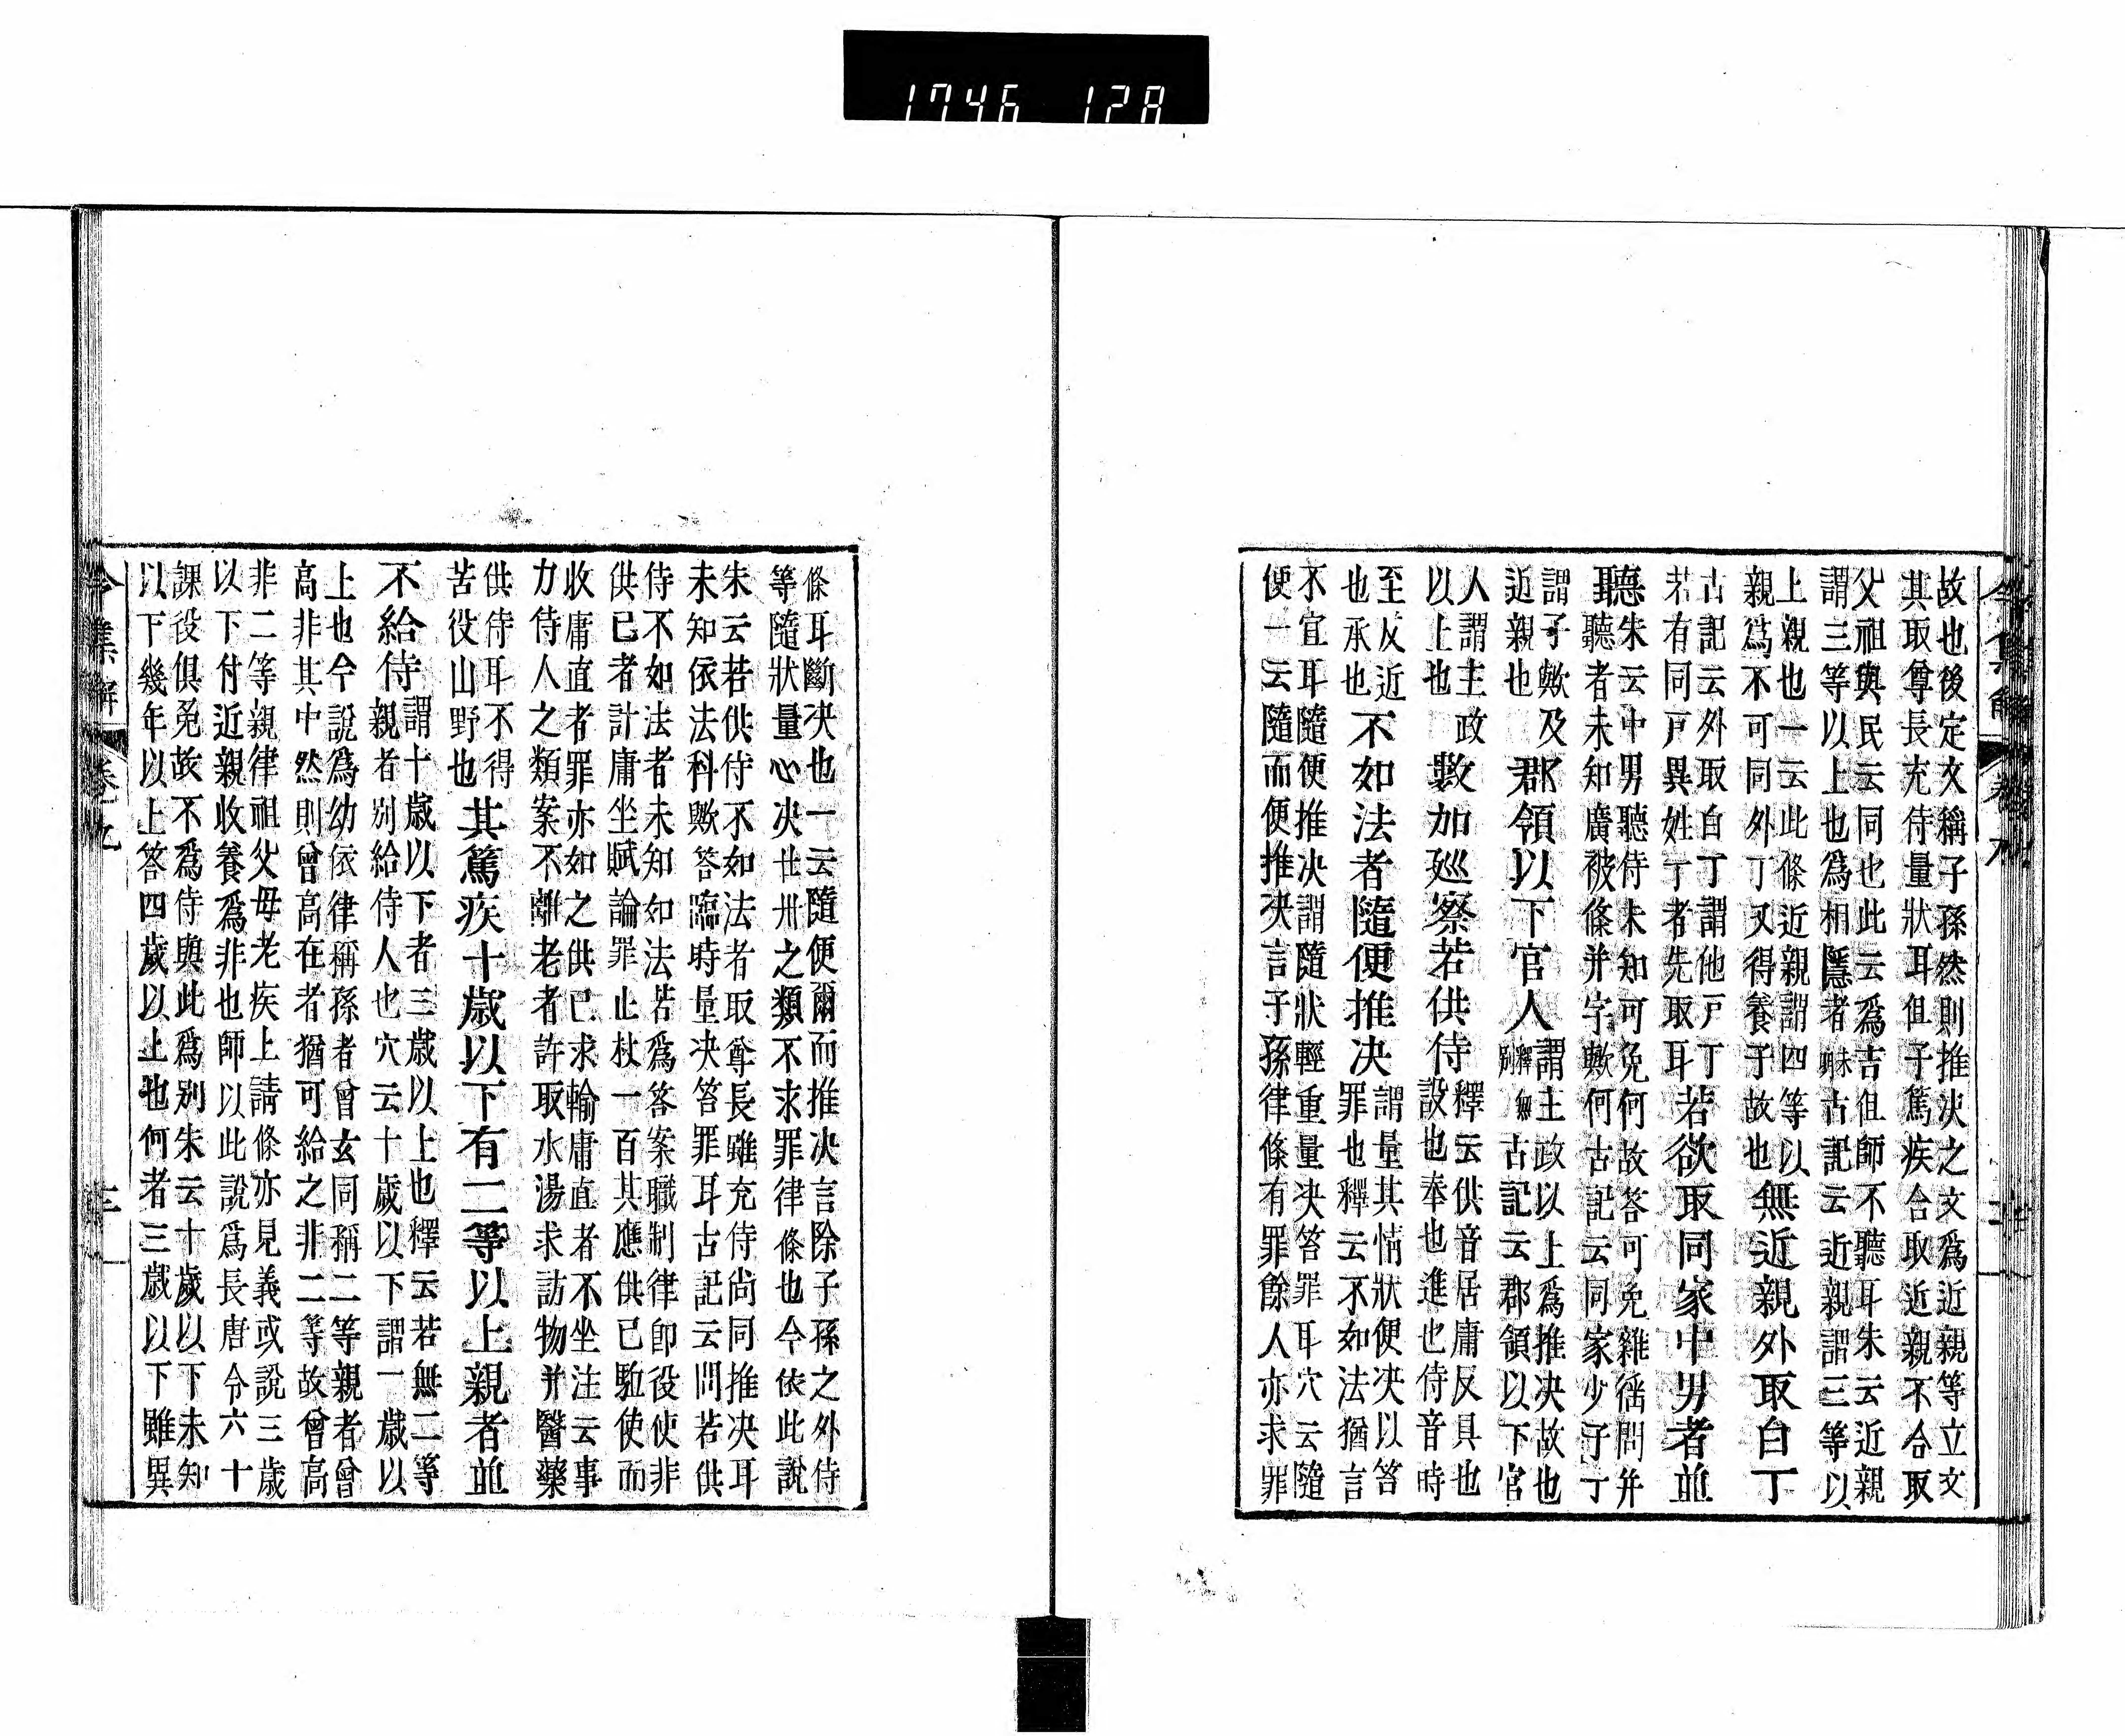 1746 128
故也後定文稱子孫然則推决之文爲近親等立文
其取尊長充侍量狀耳但子篤疾合取近親不合取
父祖與民云同也此云爲吉但師不聽耳朱云近親
謂三等以上也爲相隱者耳未古記云近親謂三等以
上親也一云此條近親謂四等以
親爲不可同外丁又得養子故也無近親外取白丁
古記云外取白丁謂他戸丁
若有同戸異姓丁者先取耳若欲取同家中男者並
聽朱云中男聽侍未知可免何故答可免雜徭問并
聽者未知廣被條并字歟何古記云同家少子丁
謂子歟及
近親也郡領以下官人謂主政以上爲推决故也
釋無別古記云郡領以下官
人謂主政
以上也數加廵察若供侍釋云供音居庸反具也
設也奉也進也侍音時
至反近
也承也不如法者隨便推决謂量其情狀便决以笞
罪也釋云不如法猶言
不宜耳隨便推决謂隨狀輕重量决笞罪耳穴云隨
便一云隨而便推决言子孫律條有罪餘人亦求罪
令集解 卷九
條耳斷决也一云隨便爾而推决言除子孫之外侍
等隨狀量心决廿卅之類不求罪律條也今依此說
朱云若供侍不如法者取尊長雖充侍尚同推决耳
未知依法科歟答臨時量决笞罪耳古記云問若供
侍不如法者未知如法若爲答案職制律即役使非
供已者計庸坐贓論罪止杖一百其應供已駈使而
收庸直者罪亦如之供已求輸庸直者不坐注云事
力侍人之類案不離老者許取水湯求訪物并醫藥
供侍耳不得
苦役山野也其篤疾十歲以下有二等以上親者並
不給侍謂十歲以下者三歲以上也釋云若無二等
親者別給侍人也穴云十歲以下謂一歲以
上也今說爲幼依律稱孫者曾玄同稱二等親者曾
高非其中然則曾高在者猶可給之非二等故曾高
非二等親律祖父毋老疾上請條亦見義或說三歲
以下付近親收養爲非也師以此說爲長唐令六十
課役俱免故不爲侍與此爲別朱云十歲以下未知
以下幾年以上答四歲以上也何者三歲以下雖異
令集解 卷九